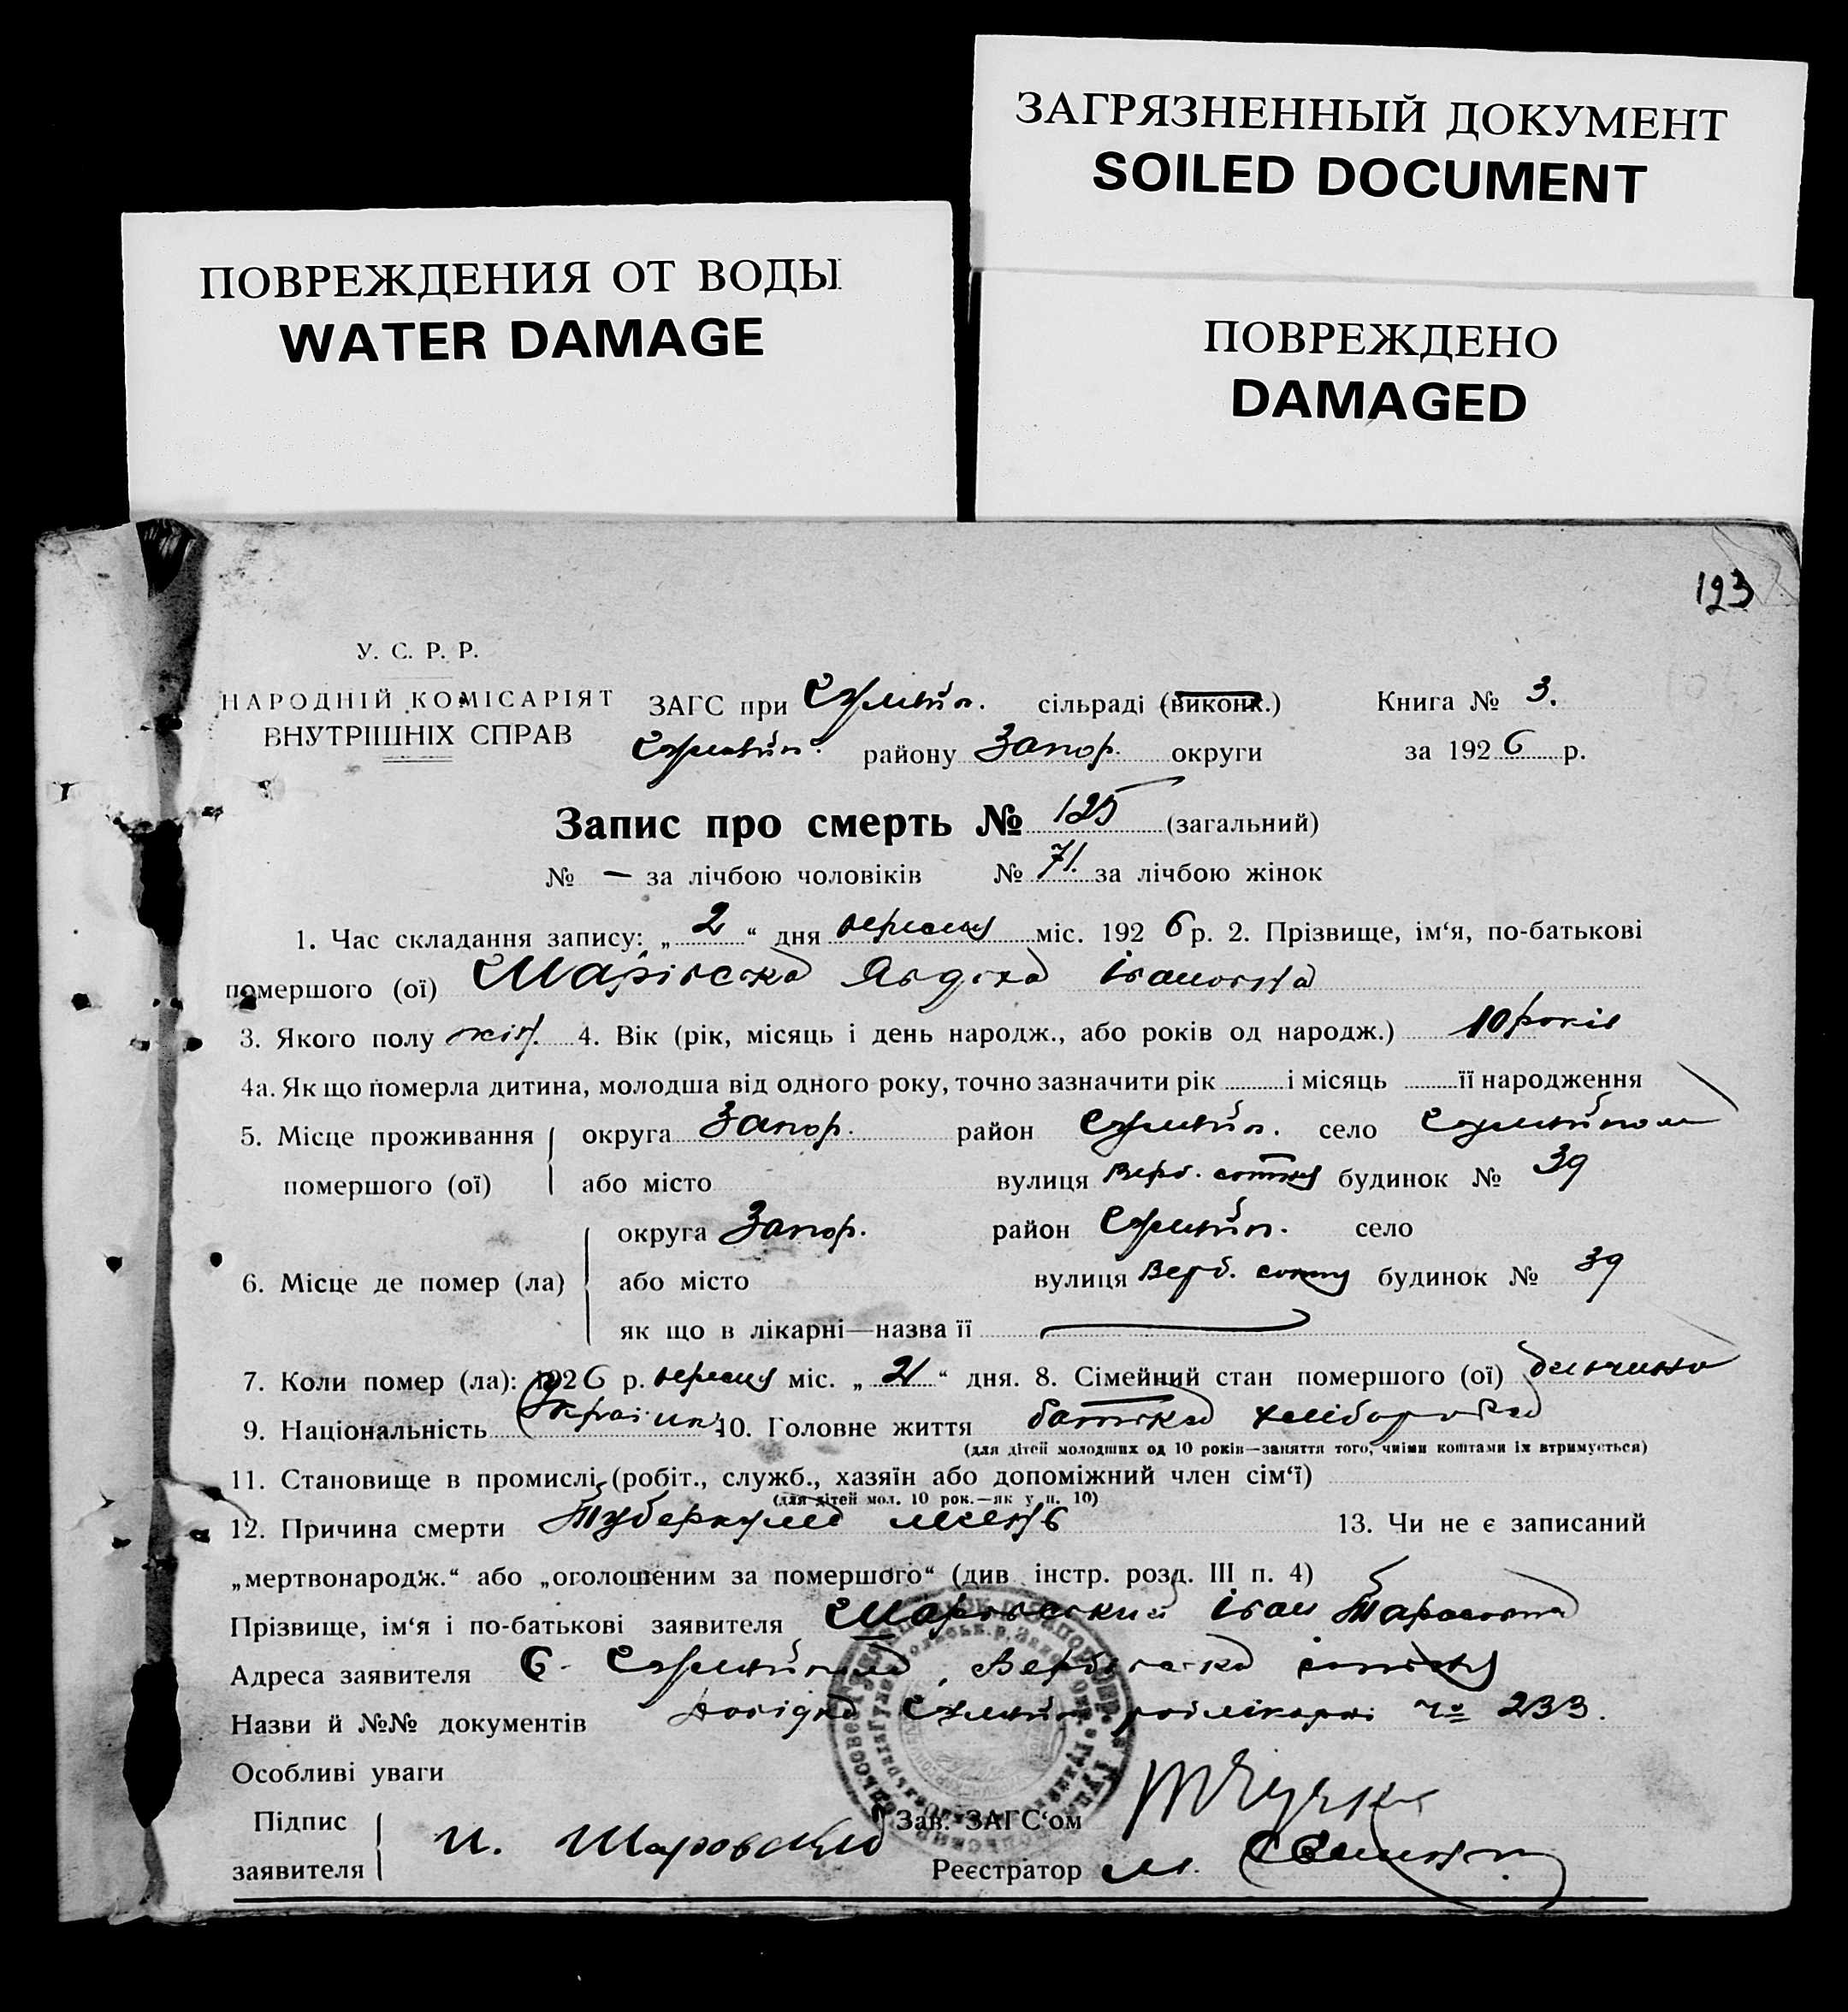 ЗАГРЯЗНЕННЫЙ ДОКУМЕНТ
SOILED DOCUMENT
ПОВРЕЖДЕНИЯ ОТ ВОДЫ
WATER DAMAGE
ПОВРЕЖДЕНО
DAMAGED
123
У. С. Р. Р.
НАРОДНІЙ КОМІСАРІЯТ
ВНУТРІШНІХ СПРАВ
ЗАГС при сільраді (виконк.) Книга № 3.
району Запор. округи за 1926 р.
Запис про смерть № 125 (загальний)
№ — за лічбою чоловіків № 71. за лічбою жінок
1. Час складання запису: „2“ дня вересня міс. 1926 р. 2. Прізвище, ім‘я, по-батькові
помершого (ої) Шарівська Явдоха Івановна
3. Якого полу жін. 4. Вік (рік, місяць і день народж., або років од народж.) 10 років
4а. Як що померла дитина, молодша від одного року, точно зазначити рік і місяць її народження
5. Місце проживання округа Запор. район село
помершого (ої) або місто вулиця Верб. сотня будинок № 39
округа Запор. район село
6. Місце де помер (ла) або місто вулиця Верб. сотня будинок № 39
як що в лікарні—назва її
7. Коли помер (ла): 1926 р. вересня міс. „ “ дня. 8. Сімейний стан помершого (ої) дівчина
9. Національність Українк. 10. Головне життя батька хлібороба
(для дітей молодших од 10 років—заняття того, чиїми коштами їх втримується)
11. Становище в промислі (робіт., служб., хазяїн або допоміжний член сім‘ї)
(для дітей мол. 10 рок.—як у п. 10)
12. Причина смерти Туберкульо легенів 13. Чи не є записаний
„мертвонародж.“ або „оголошеним за помершого“ (див. інстр. розд. III п. 4)
Прізвище, ім‘я і по-батькові заявителя Шаровський Іван Тарасович
Адреса заявителя С. Вербовська сотня
Назви й №№ документів Довідка райлікарні № 233.
Особливі уваги
Підпис
заявителя И. Шаровский
Зав. ЗАГС‘ом
Реєстратор